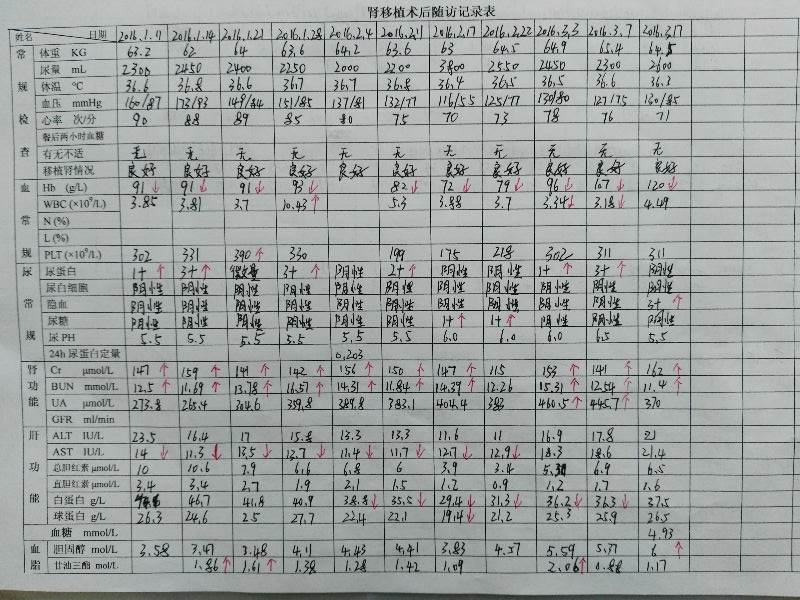 肾移植术后随访记录表
姓名 日期 2016.1.7 2016.1.14 2016.1.21 2016.1.28 2016.2.4 2016.2.11 2016.2.17 2016.2.22 2016.3.3 2016.3.7 2016.3.17
常规检查 体重 KG 63.2 62 64 63.6 64.2 63.6 63 64.5 64.9 65.4 64.5
尿量 mL 2300 2450 2400 2250 2000 2200 3800 2550 2450 2300 2600
体温 ℃ 36.6 36.8 36.6 36.7 36.7 36.8 36.4 36.5 36.5 36.6 36.3
血压 mmHg 160/87 173/93 149/84 151/85 137/81 132/77 116/55 125/77 130/80 127/75 130/85
心率 次/分 90 88 89 85 80 75 70 73 78 76 71
餐后两小时血糖
有无不适 无 无 无 无 无 无 无 无 无 无 无
移植肾情况 良好 良好 良好 良好 良好 良好 良好 良好 良好 良好 良好
血常规 Hb (g/L) 91↓ 91↓ 91↓ 93↓ 82↓ 72↓ 79↓ 96↓ 107↓ 120↓
WBC (×10⁹/L) 3.85 3.81 3.7 10.43↑ 5.3 3.88 3.7 3.34↓ 3.18↓ 4.49
N (%)
L (%)
PLT (×10⁹/L) 302 331 390↑ 330 199 175 218 302 311 311
尿常规 尿蛋白 1+↑ 3+↑ 微量 3+↑ 阴性 2+↑ 阴性 阴性 1+↑ 3+↑ 阴性
尿白细胞 阴性 阴性 阴性 阴性 阴性 阴性 阴性 阴性 阴性 阴性 阴性
隐血 阴性 阴性 阴性 阴性 阴性 阴性 阴性 阴性 阴性 阴性 3+↑
尿糖 阴性 阴性 阴性 阴性 阴性 阴性 1+↑ 1+↑ 阴性 阴性 阴性
尿 PH 5.5 5.5 5.5 5.5 5.5 5.5 6.0 6.0 6.0 6.5 5.5
24h 尿蛋白定量 0.203
肾功能 Cr μmol/L 147↑ 159↑ 141↑ 142↑ 156↑ 150↑ 147↑ 115 153↑ 141↑ 162↑
BUN mmol/L 12.5↑ 11.69↑ 13.78↑ 16.57↑ 14.31↑ 11.84↑ 14.39↑ 12.26 15.31↑ 12.54↑ 11.4↑
UA μmol/L 273.8 265.4 304.6 359.8 389.8 383.1 404.4 383 460.5↑ 445.7↑ 370
GFR ml/min
肝功能 ALT IU/L 23.5 16.4 17 15.8 13.3 13.3 11.6 11 16.9 17.8 21
AST IU/L 14↓ 11.3↓ 13.5↓ 12.7↓ 11.4↓ 11.7↓ 12.7↓ 12.9↓ 18.3 18.6 21.4
总胆红素 μmol/L 10 10.6 7.9 6.6 6.8 6 3.9 3.4 6.9 6.5
直胆红素 μmol/L 3.4 3.4 2.7 1.9 2.1 1.5 1.2 0.9 1.2 1.7 1.6
白蛋白 g/L 46.7 41.8 40.9 38.8↓ 35.5↓ 29.4↓ 31.3↓ 36.2↓ 36.3↓ 37.5
球蛋白 g/L 26.3 24.6 25 27.7 22.4 22.1 19.4↓ 21.2 25.3 25.9 26.5
血糖 mmol/L 4.93
血脂 胆固醇 mol/L 3.58 3.47 3.48 4.11 4.43 4.41 3.83 4.57 5.59 5.37 6↑
甘油三酯 mol/L 1.86↑ 1.61↑ 1.38 1.28 1.42 1.09 2.06↑ 0.88 1.17